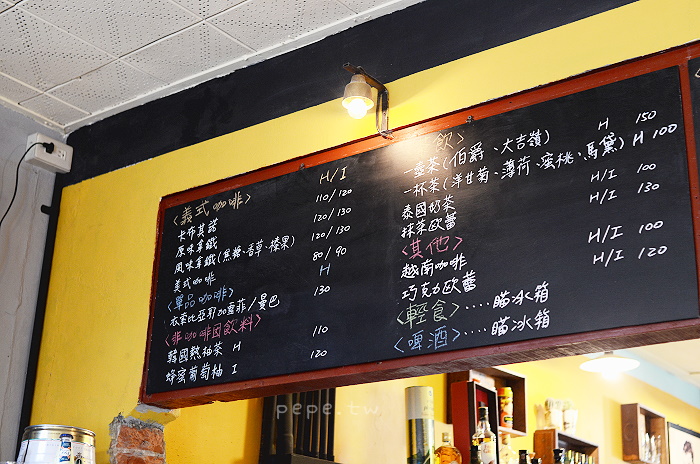 H/I
<義式咖啡>
卡布其諾 110/120
原味拿鐵 120/130
風味拿鐵(焦糖、香草、榛果) 120/130
美式咖啡 80/90
<單品咖啡> H
衣索比亞耶加雪菲/曼巴 130
<非咖啡因飲料>
韓國熱柚茶 H 110
蜂蜜葡萄柚 I 120
飲>
一壺茶(伯爵、大吉嶺) H 150
一杯茶(洋甘菊、薄荷、蜜桃、馬黛) H 100
泰國奶茶 H/I 100
抹茶歐蕾 H/I 130
<其他>
越南咖啡 H/I 100
巧克力歐蕾 H/I 120
<輕食>....瞄冰箱
<啤酒>....瞄冰箱
pepe.tw